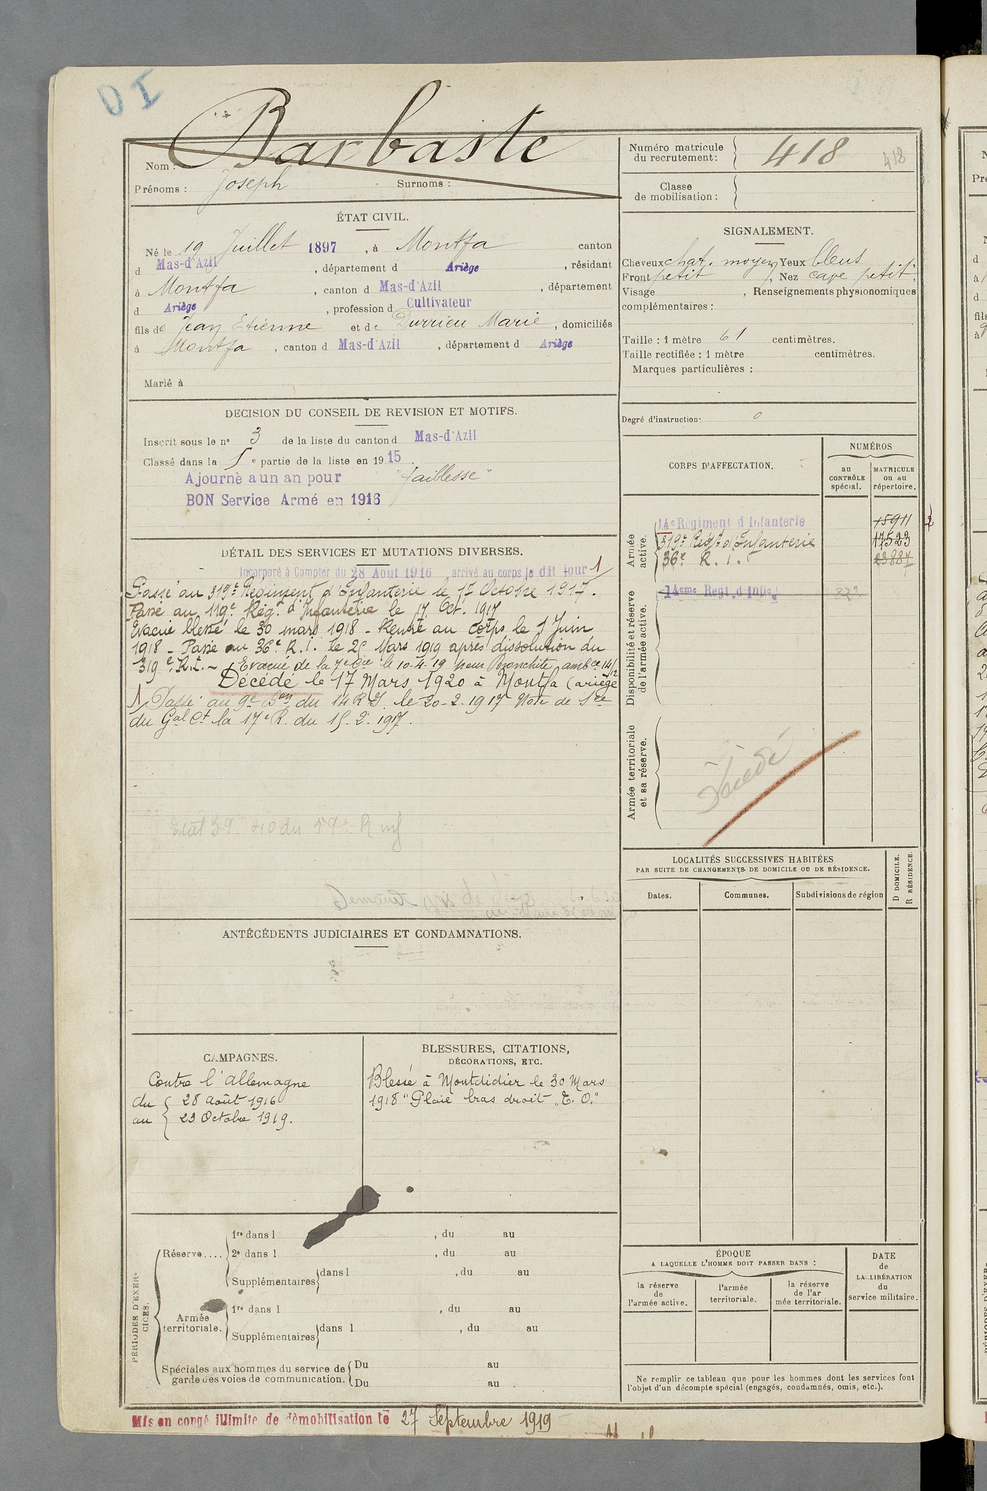 Barbaste
Nom :
Prénoms : Joseph Surnoms :
Numéro matricule du recrutement : 418 418
Classe de mobilisation :
ÉTAT CIVIL.
Né le 19 Juillet 1897, à Montfa canton
d Mas-d'Azil, département d Ariège, résidant
à Montfa, canton d Mas-d'Azil, département
d Ariège, profession d Cultivateur
fils de Jean Etienne et de Durrieu Marie, domiciliés
à Montfa, canton d Mas-d'Azil, département d Ariège
Marié à
SIGNALEMENT.
Cheveux chat. moyen Yeux bleus
Front petit, Nez cave petit
Visage , Renseignements physionomiques
complémentaires :
Taille : 1 mètre 61 centimètres.
Taille rectifiée : 1 mètre centimètres.
Marques particulières :
Degré d'instruction : 0
DECISION DU CONSEIL DE REVISION ET MOTIFS.
Inscrit sous le n° 3 de la liste du canton d Mas-d'Azil
Classé dans la 5e partie de la liste en 1915.
Ajourné a un an pour "faiblesse"
BON Service Armé en 1916
DÉTAIL DES SERVICES ET MUTATIONS DIVERSES.
Incorporé à Compter du 28 Aout 1916, arrivé au corps le dit jour 1
Passé au 319e Régiment d'Infanterie le 1er Octobre 1917.
Passé au 119e Rég. d'Infanterie le 17 Oct. 1917
Evacué blessé le 30 mars 1918 - Rentré au corps le 1 Juin
1918 - Passé au 36e R.I. le 25 Mars 1919 après dissolution du
319e R.I. - Evacué de la 7e Cie le 10-4-19 pour Bronchite
Décédé le 17 Mars 1920 à Montfa (ariège
1 Passé au 9e Bon du 14 R.I. le 20-2-1917 Note de
du Gal Ct la 17e R. du 15.2.1917.
CORPS D'AFFECTATION.
NUMÉROS
au CONTRÔLE spécial.
MATRICULE ou au répertoire.
Armée active.
14e Régiment d'Infanterie 15911 2
319e Régt d'Infanterie 17523
36e R. I. 23884
Disponibilité et réserve de l'armée active.
14eme Regt d'Infie
Armée territoriale et sa réserve.
Décédé
LOCALITÉS SUCCESSIVES HABITÉES
PAR SUITE DE CHANGEMENTS DE DOMICILE OU DE RÉSIDENCE.
Dates.
Communes.
Subdivisions de région
D DOMICILE.
R RÉSIDENCE.
ANTÉCÉDENTS JUDICIAIRES ET CONDAMNATIONS.
CAMPAGNES.
Contre l'allemagne
du 28 août 1916
au 23 Octobre 1919.
BLESSURES, CITATIONS,
DÉCORATIONS, ETC.
Blessé à Montdidier le 30 Mars
1918 "Plaie bras droit "E. O."
PÉRIODES D'EXERCICES.
Réserve....
1re dans l , du au
2e dans l , du au
Supplémentaires dans l , du au
Armée territoriale.
1re dans l , du au
Supplémentaires dans l , du au
Spéciales aux hommes du service de
garde des voies de communication.
Du au
Du au
ÉPOQUE
A LAQUELLE L'HOMME DOIT PASSER DANS :
la réserve de l'armée active.
l'armée territoriale.
la réserve de l'armée territoriale.
DATE
de
LA LIBÉRATION
du
service militaire.
Ne remplir ce tableau que pour les hommes dont les services font
l'objet d'un décompte spécial (engagés, condamnés, omis, etc.).
Mis en congé illimité de démobilisation le 27 Septembre 1919